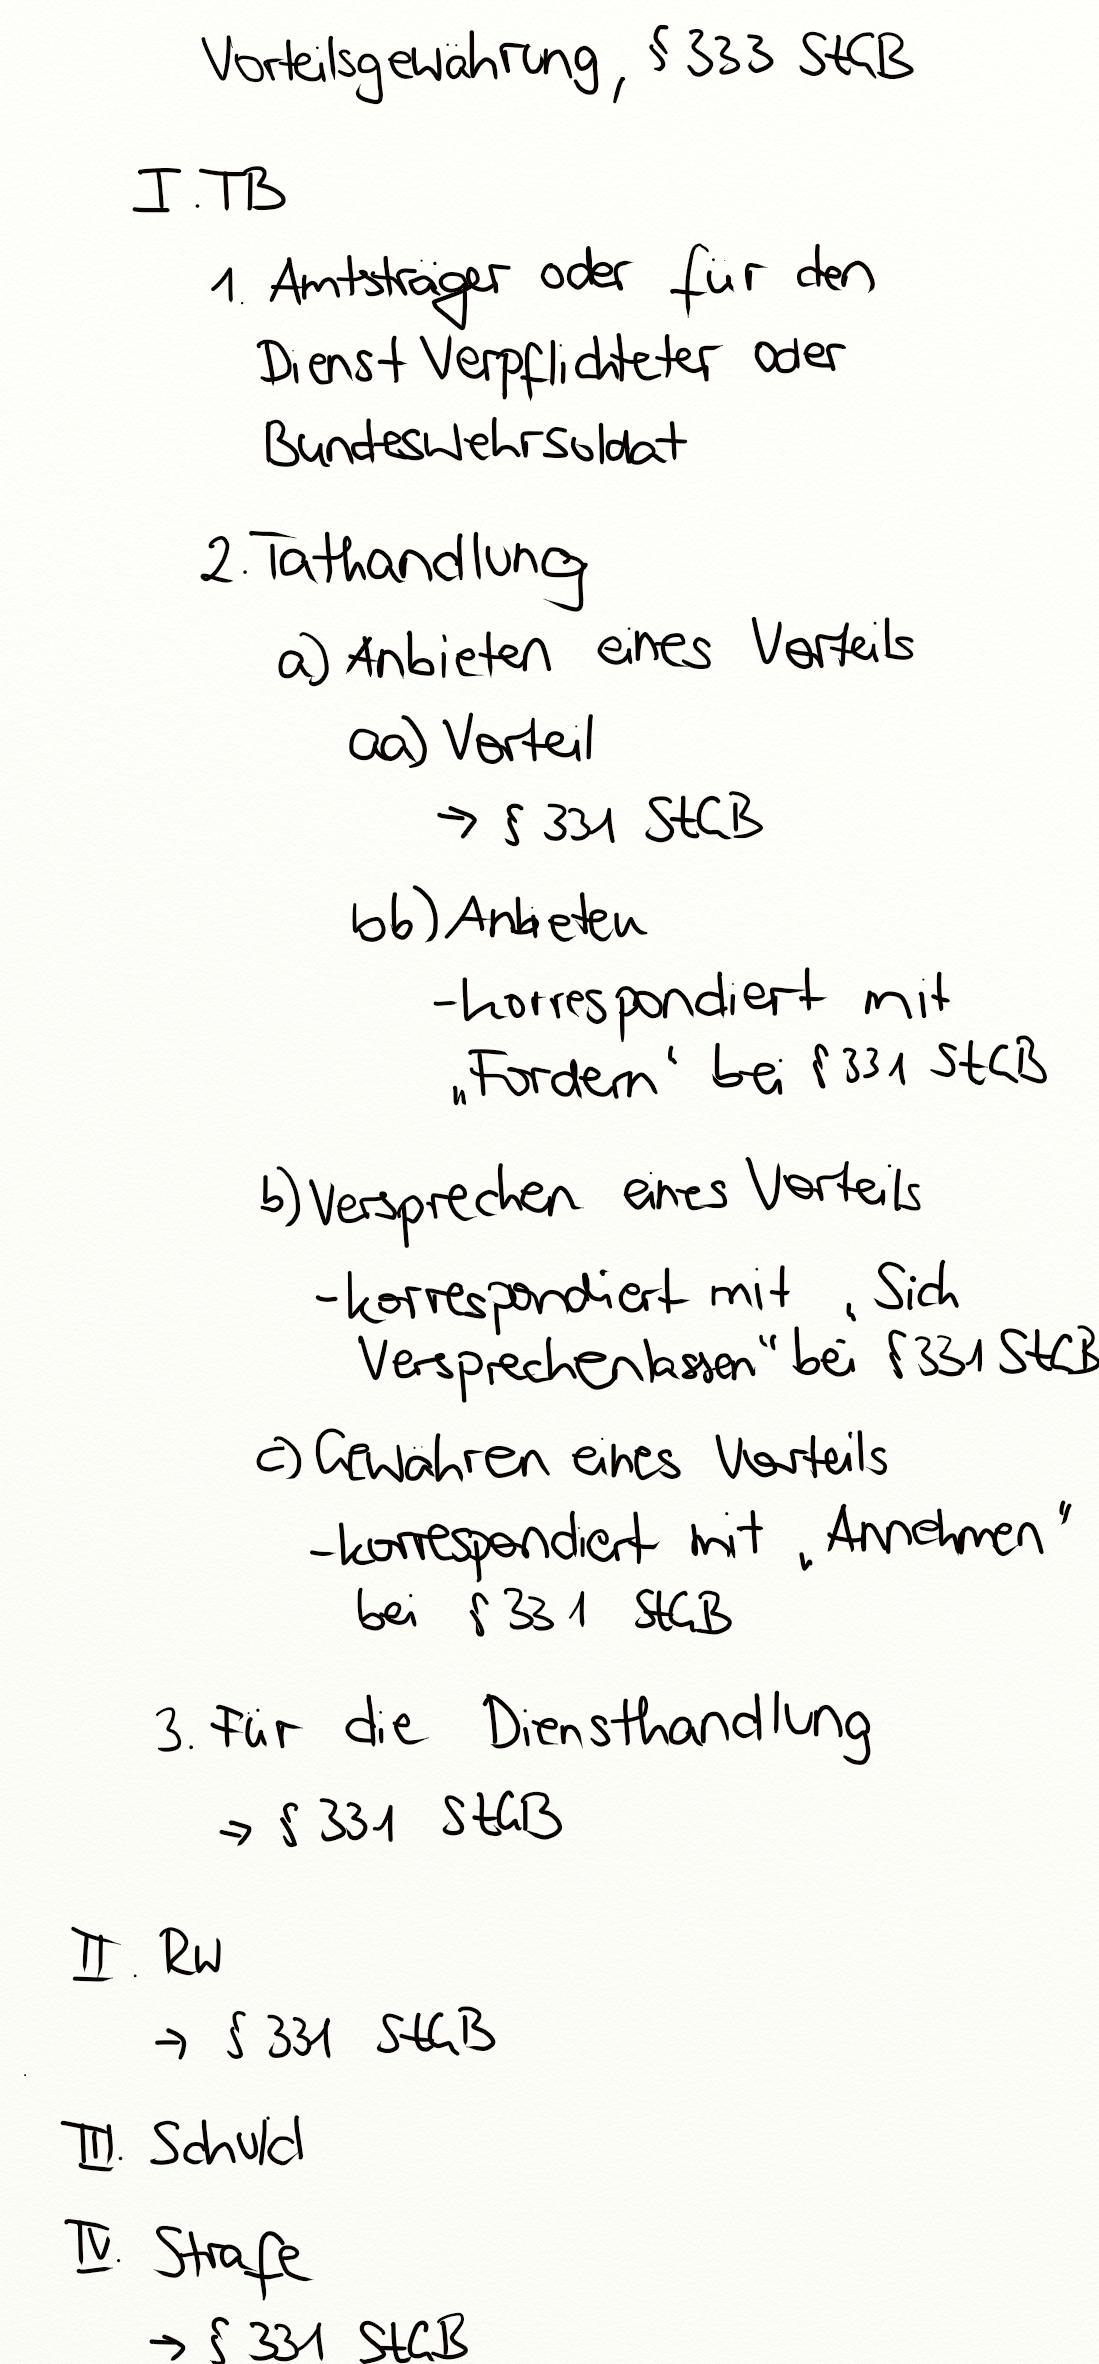 Vorteilsgewährung, § 333 StGB
I. TB
1. Amtsträger oder für den
Dienst Verpflichteter oder
Bundeswehrsoldat
2. Tathandlung
a) Anbieten eines Vorteils
aa) Vorteil
→ § 331 StGB
bb) Anbieten
- korrespondiert mit
„Fordern‘ bei § 331 StGB
b) Versprechen eines Vorteils
- korrespondiert mit ‚Sich
Versprechenlassen“ bei § 331 StGB
c) Gewähren eines Vorteils
- korrespondiert mit „Annehmen”
bei § 331 StGB
3. Für die Diensthandlung
→ § 331 StGB
II. RW
→ § 331 StGB
III. Schuld
IV. Strafe
→ § 331 StGB